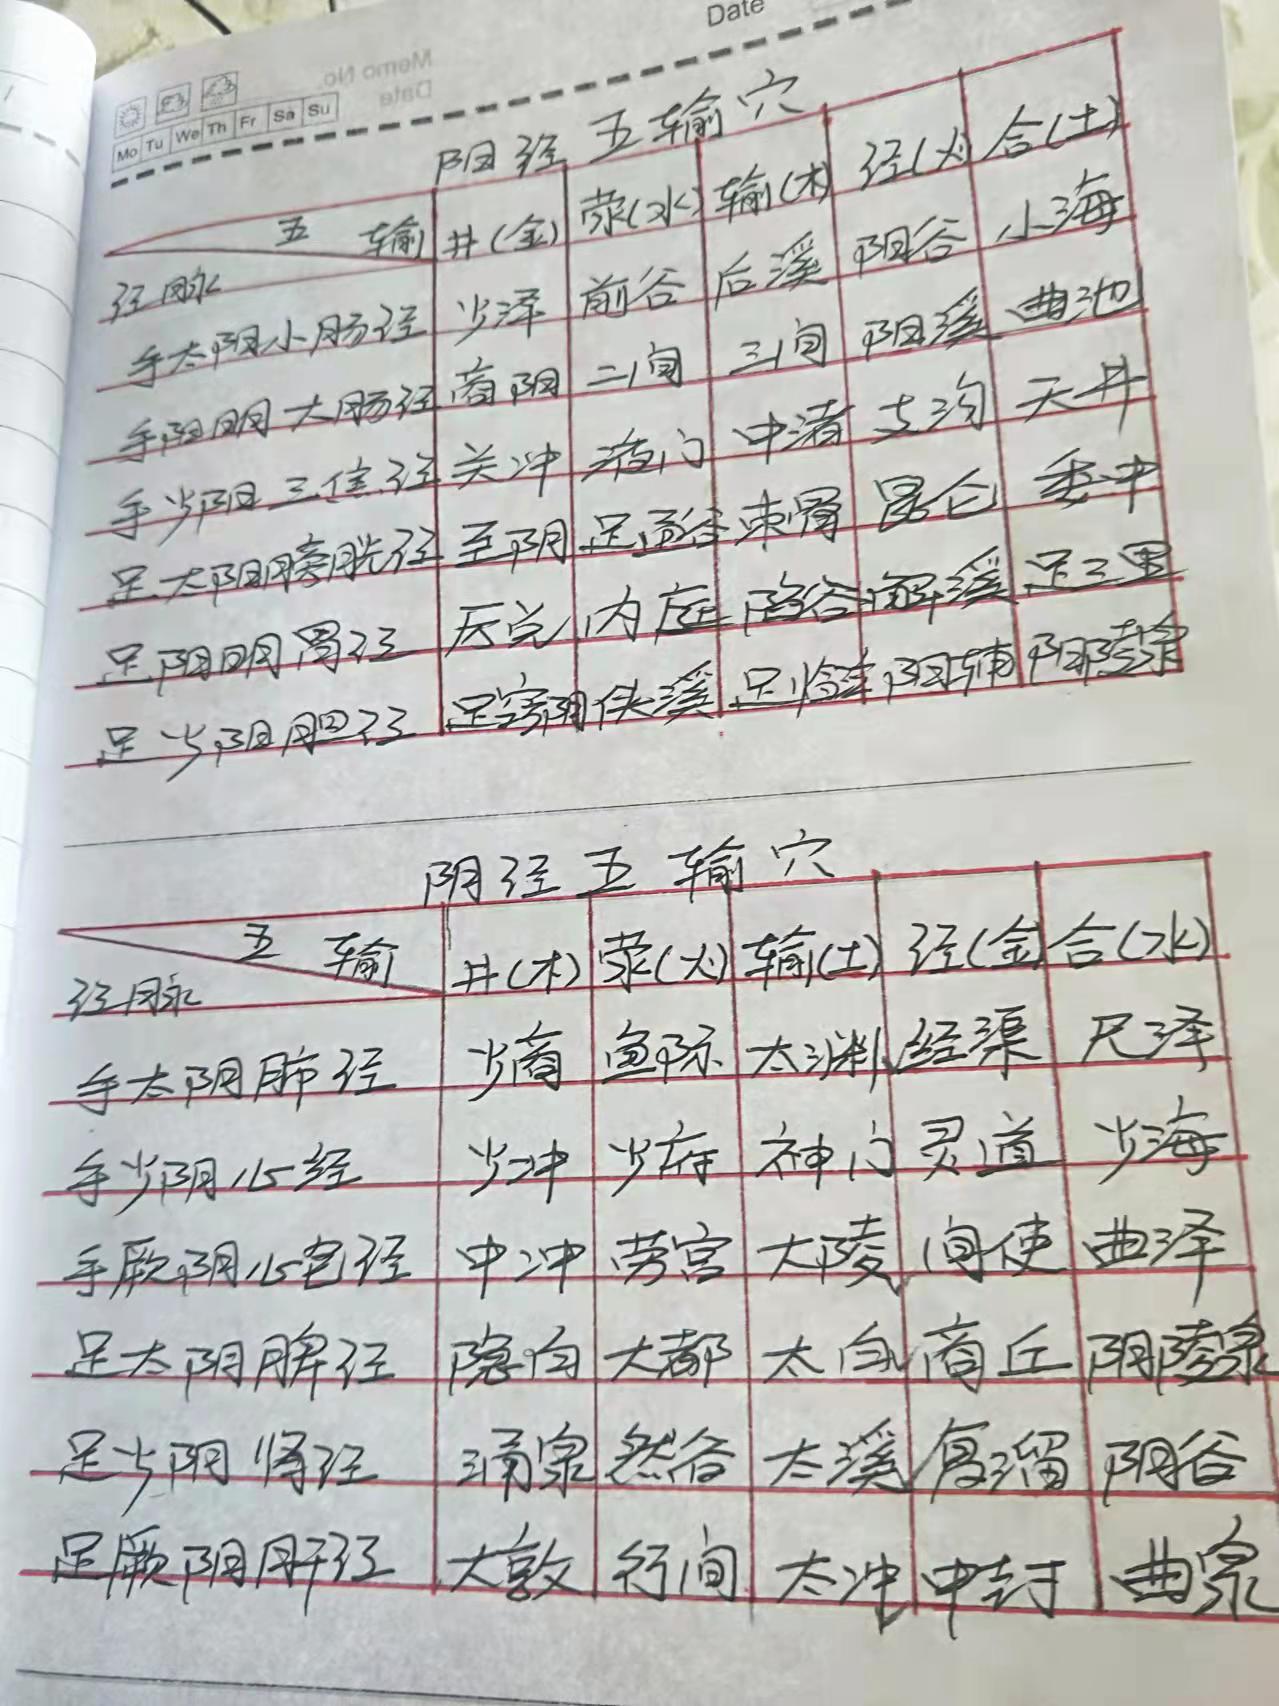 Date
Memo No.
Date
Mo Tu We Th Fr Sa Su
阳经五输穴
五输 井(金) 荥(水) 输(木) 经(火) 合(土)
经脉
手太阳小肠经 少泽 前谷 后溪 阳谷 小海
手阳明大肠经 商阳 二间 三间 阳溪 曲池
手少阳三焦经 关冲 液门 中渚 支沟 天井
足太阳膀胱经 至阴 足通谷 束骨 昆仑 委中
足阳明胃经 厉兑 内庭 陷谷 解溪 足三里
足少阳胆经 足窍阴 侠溪 足临泣 阳辅 阳陵泉
阴经五输穴
五输 井(木) 荥(火) 输(土) 经(金) 合(水)
经脉
手太阴肺经 少商 鱼际 太渊 经渠 尺泽
手少阴心经 少冲 少府 神门 灵道 少海
手厥阴心包经 中冲 劳宫 大陵 间使 曲泽
足太阴脾经 隐白 大都 太白 商丘 阴陵泉
足少阴肾经 涌泉 然谷 太溪 复溜 阴谷
足厥阴肝经 大敦 行间 太冲 中封 曲泉